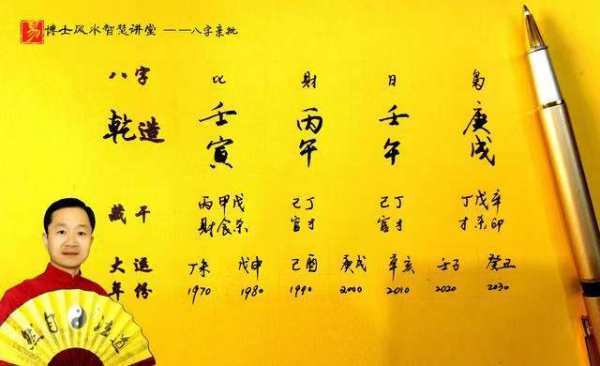 易 博士风水智慧讲堂 ——八字亲批
八字 比 財 日 枭
乾造 壬 丙 壬 庚
寅 午 午 戌
藏干 丙甲戊 己丁 己丁 丁戊辛
财食杀 官才 官才 才杀印
大运 丁未 戊申 己酉 庚戌 辛亥 壬子 癸丑
年份 1970 1980 1990 2000 2010 2020 2030
道法自然